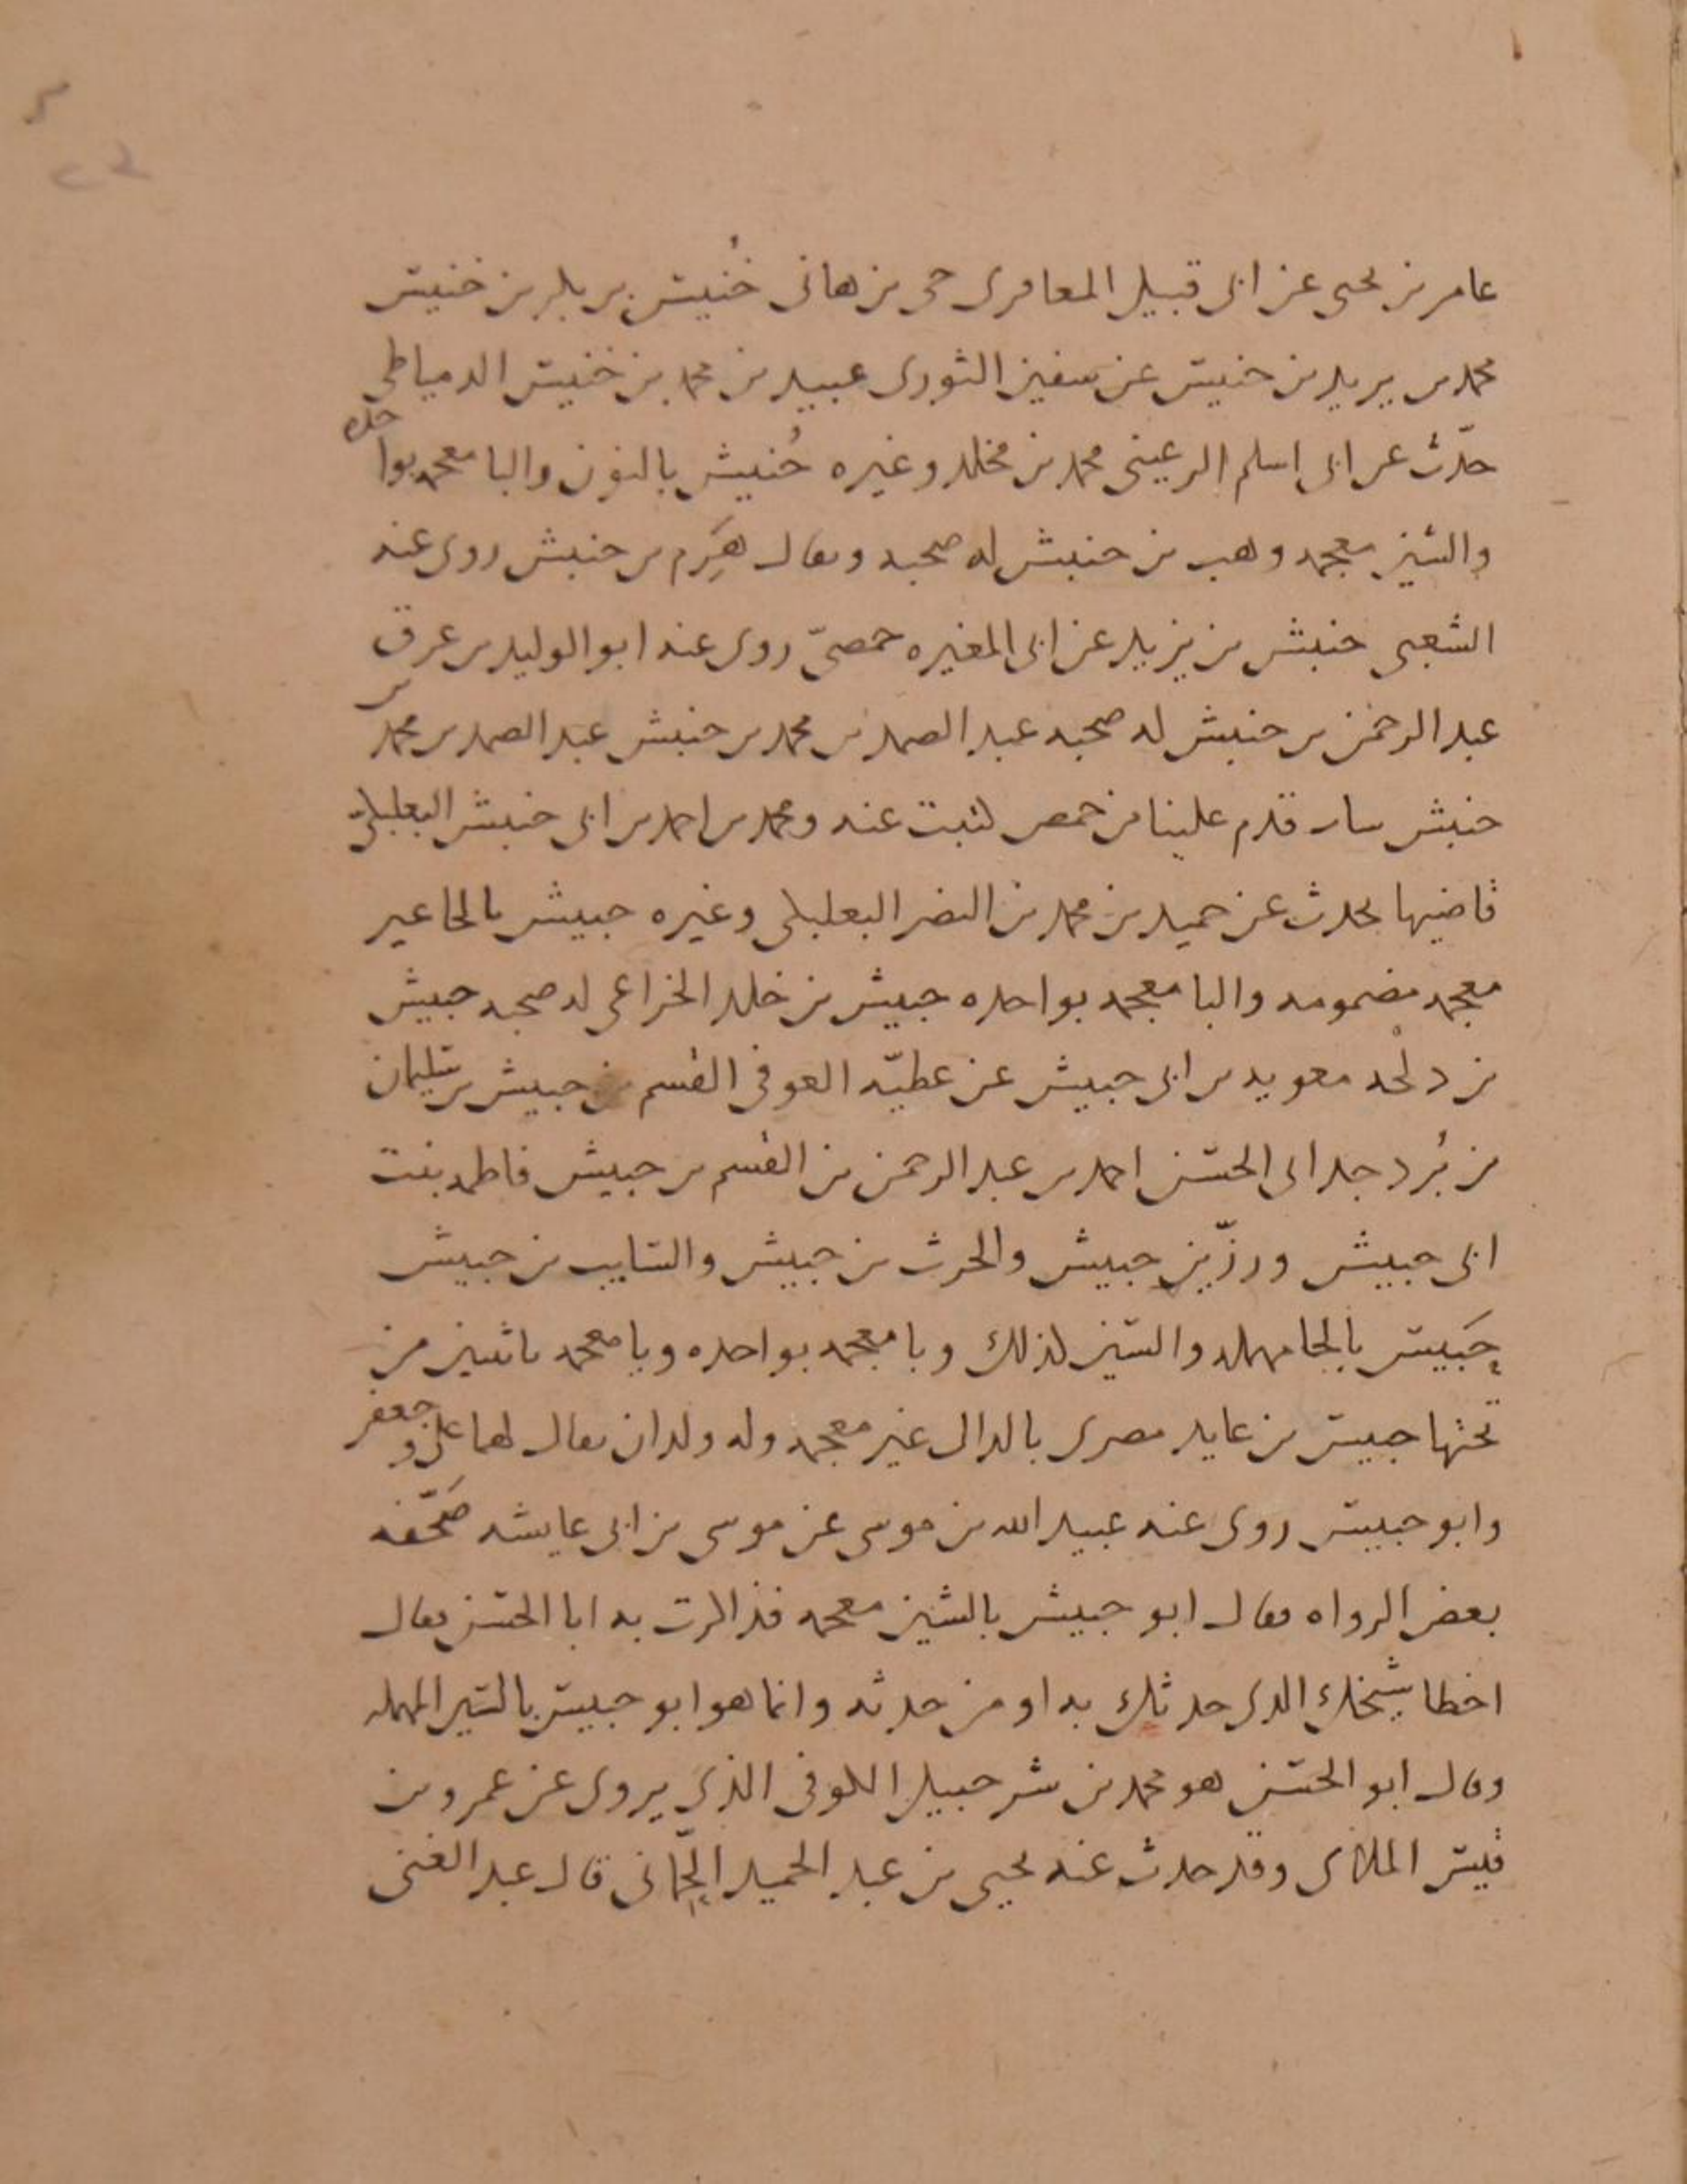 عامر بن يحيى عن ابى قبيل المعافرى حى بن هانى خُنيس بن بكر بن خنيس
محمد بن يزيد بن خنيس عن سفين الثورى عبيد بن محمد بن خنيس الدمياطى
حدّث عن ابى اسلم الرعينى محمد بن مخلد وغيره خُنبش بالنون والبا معجمه بواحده
والشين معجمه وهب بن خنبش له صحبه ويقال هَرِم بن خنبش روى عنه
الشعبى خنبش بن يزيد عن ابى المغيره حمصىّ روى عنه ابو الوليد بن عرق
عبد الرحمن بن خنبش له صحبه عبد الصمد بن محمد بن خنبش عبد الصمد بن محمد بن
خنبش قدم علينا من حمص كتبت عنه ومحمد بن احمد بن ابى خنبش البعلبكىّ
قاضيها يحدث عن حميد بن محمد بن النضر البعلبكى وغيره حبيش بالحا غير
معجمه مضمومه والبا معجمه بواحده حبيش بن خلد الخزاعى له صحبه حبيش
بن دلجه معويه بن ابى حبيش عن عطيّه العوفى القسم بن حبيش بن سليمان
بن بُرد جد ابى الحسن احمد بن عبد الرحمن بن القسم بن حبيش فاطمه بنت
ابى حبيش وزرّ بن حبيش والحرث بن حبيش والسايب بن حبيش
حَبيس بالحا مهمله والسين كذلك وبا معجمه بواحده ويا معجمه باثنين من
تحتها حبيس بن عايد مصرى بالدال غير معجمه وله ولدان يقال لهما على وجعفر
وابو حبيس روى عنه عبيد الله بن موسى عن موسى بن ابى عايشه صَحّفه
بعض الرواه فقال ابو حبيش بالشين معجمه فذاكرت به ابا الحسن فقال
اخطا شيخك الذى حدثك به او من حدثه وانما هو ابو حبيس بالسين المهمله
وقال ابو الحسن هو محمد بن شرحبيل الكوفى الذى يروى عن عمرو بن
قيس الملائى وقد حدث عنه يحيى بن عبد الحميد الحِمّانى قال عبد الغنى